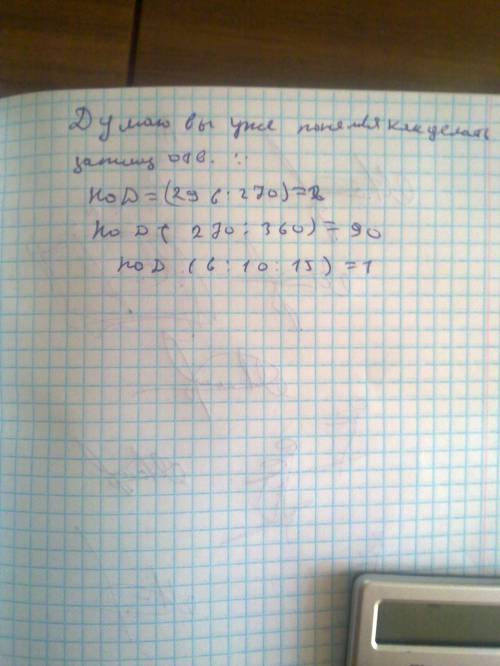 Думаю вы уже поняли как делать
запишу отв.
НОД=(296:270)=2
НОД(270:360)=90
НОД(6:10:15)=1